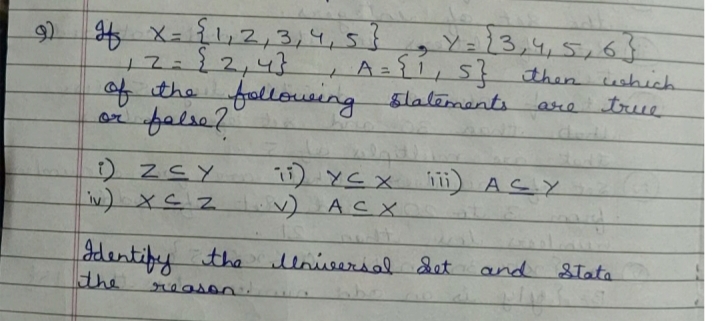 9) If X = {1, 2, 3, 4, 5}, Y = {3, 4, 5, 6}
, Z = {2, 4}, A = {1, 5} then which
of the following statements are true
or false?
i) Z ⊆ Y ii) Y ⊆ X iii) A ⊆ Y
iv) X ⊆ Z v) A ⊂ X
Identify the Universal Set and State
the reason.